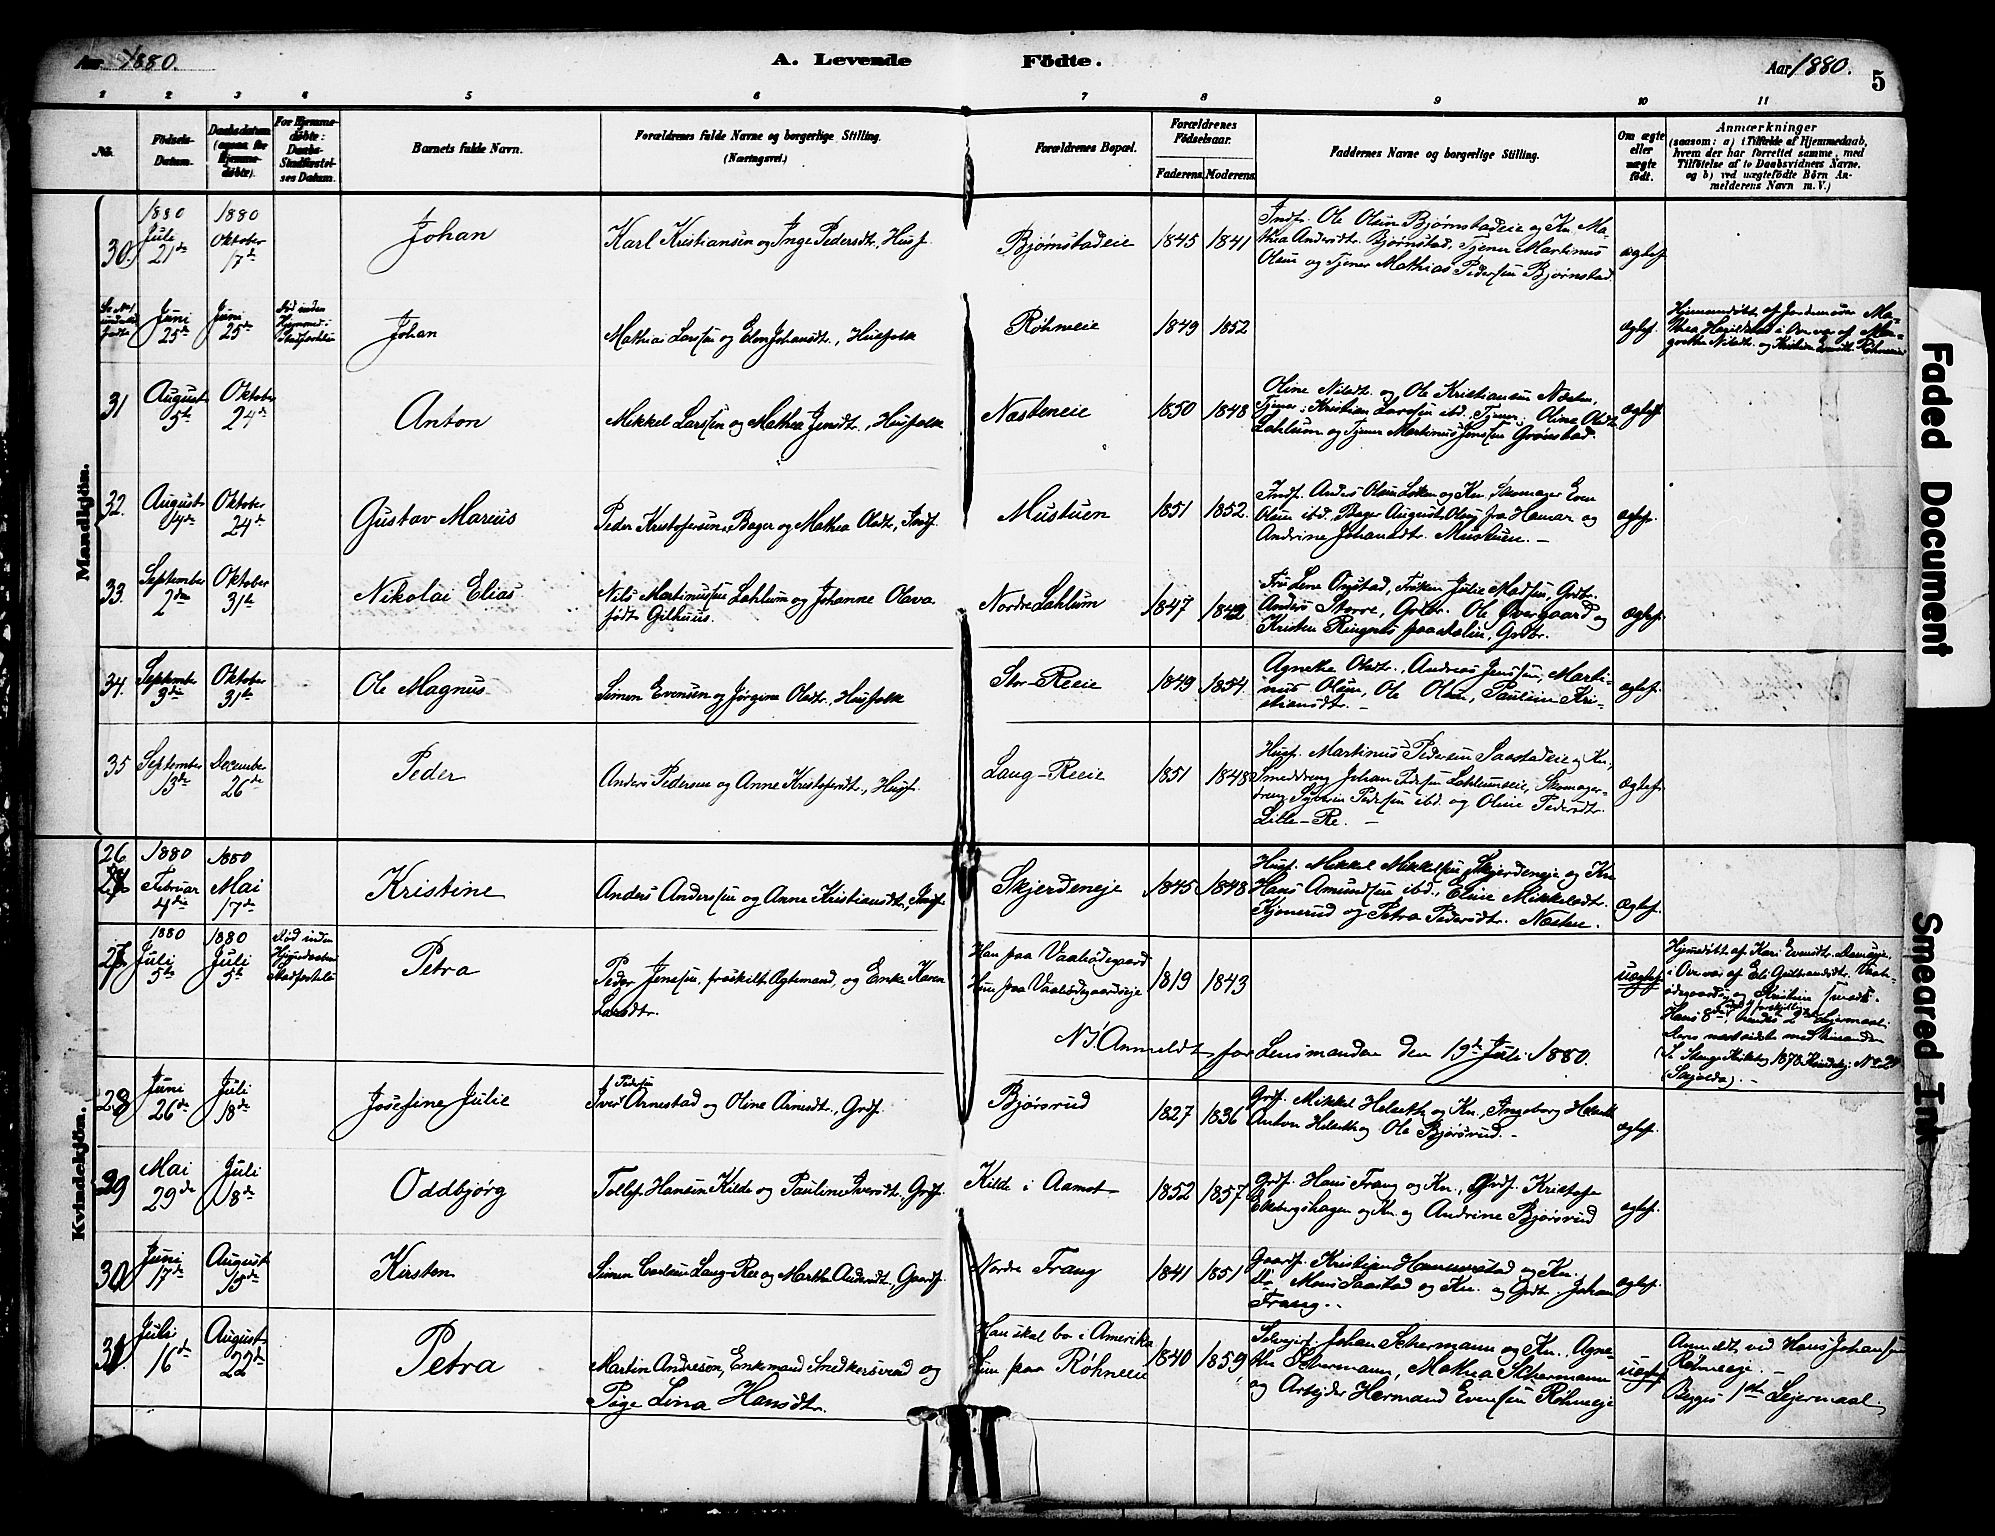 Aar 1880.
A. Levende Födte.
Aar 1880.
5
1 2 3 4 5 6 7 8 9 10 11
No.
Födsels-
Datum.
Daabsdatum
(ogsaa for
Hjemme-
döbte).
For Hjemme-
döbte:
Daabs-
Stadfæstel-
ses Datum.
Barnets fulde Navn.
Forældrenes fulde Navne og borgerlige Stilling.
(Næringsvei.)
Forældrenes Bopæl.
Forældrenes
Födselsaar.
Faderens. Moderens.
Faddernes Navne og borgerlige Stilling.
Om ægte
eller
uægte
født.
Anmærkninger
(saasom: a) i Tilfælde af Hjemmedaab,
hvem der har forrettet samme, med
Tilföielse af to Daabsvidners Navne.
og b) ved uægtefödte Börn An-
melderens Navn m. V.)
Mandkjön.
30.
1880
Juli
21de
1880
Oktober
17de
Johan
Karl Kristiansen og Inge Pedersdt., Husf.
Bjørnstadeie
1845 1841
Indf. Ole Olsen Bjørnstadeie og Kn. Ma-
thea Andersdt. Bjørnstad, Tjener Martinus
Olsen og Tjener Mathias Pedersen Bjørnstad
ægtef.
Juni
25de
Juni
25de
Død inden
Johan
Mathias Larssen og Elen Johansdt., Husfolk
Røhneeie
1849 1852
ægtef.
Hjemmedøbt af Jordemoder Ma-
thea i Overvær af Mar-
grethe Nilsdt. og Røhneeie
31
August
5te
Oktober
24de
Anton
Mikkel Larssen og Mathea Jensdt., Husfolk
Næsteneie
1850 1848
Oline Nilsdt. og Ole Kristiansen Næsten,
Tjener Kristian Larssen ibd., Tjener Oline Olsdt.
Lahlum og Tjener Martinus Jenssen Grønstad.
ægtef.
32.
August
14de
Oktober
24de
Gustav Marius
Peder Kristofersen, Bager og Mathea Olsdt., Indf.
Mustuen
1851 1852.
Indf. Anders Olsen Løken og Kn., Skomager Even
Olsen ibd. Bager August Olsen fra Hamar og
Andrine Johansdt. Mustuen. —
ægtef.
33.
September
2den
Oktober
31te
Nikolai Elias
Nils Martinussen Lahlum og Johanne Olava
født Gilhuus.
Nordre Lahlum
1847 1842
Fru Lene Onstad, Frøken Julie Madsen, Grdbr.
Anders Storre, Grdbr. Ole Overgaard og
Kristen Ringnes paa Stalin, Grdbr.
ægtef.
34.
September
9de
Oktober
31te
Ole Magnus
Simen Evensen og Jørgine Olsdt., Husfolk
Stor-Reeie
1849 1854.
Agnethe Olsdt., Andreas Jenssen, Marti-
nus Olsen, Ole Olsen, Pauline Kri-
stiansdt. —
ægtef.
35
September
13de
December
26de
Peder
Anders Pedersen og Anne Kristofersdt., Husf.
Lang-Reeie
1851 1848
Husf. Martinus Pedersen Saastadeie og Kn.,
Smeddreng Johan Pedersen Lahlumseie, Skomager-
dreng Syverin Pedersen ibd. og Oline Pedersdt.
Lille-Re. —
ægtef.
Kvindekjön.
26
1880
Februar
4de
1880
Mai
17de
Kristine
Anders Anderssen og Anne Kristiansdt., Indf.
Skjerdeneje
1845 1848
Husf. Mikkel Mikkelsen Skjerdeneje og Kn.
Hans Amundsen ibd., Eline Mikkelsdt.
Kjonerud og Petra Pedersdt. Næsten.
ægtef.
27
1880
Juli
5te
1880
Juli
5te
Død inden
Petra
Peder Jenssen, fraskilt Ægtemand, og Enke Karen
Larsdt.
Han paa Vaalødegaard
Hun paa Vaalødegaardseje
1819 1843
uægtef.
Hjemdøbt af Kari Evensdt.
i Overvær af Eli Gulbrandsdt.
NB. Anmeldt for Lensmanden den 19de Juli 1880.
28
Juni
26de
Juli
18de
Josefine Julie
Pedersen
Iver Arnestad og Oline Arnesdt., Grdf.
Bjørsrud
1827 1836
Grdf. Mikkel Helseth og Kn., Ingeborg Helseth
Anton Helseth og Ole Bjørsrud. —
ægtef.
29
Mai
29de
Juli
18de
Oddbjørg
Tollef Hansen Kilde og Pauline Iversdt., Grdf.
Kilde i Aamot
1852 1857
Grdf. Hans Frang og Kn., Grdf. Kristofer
Ekebergshagen og Kn. og Andrine Bjørsrud
ægtef.
30
Juni
17de
August
15de
Kirsten
Simen Carlsen Lang-Ree og Marthe Andersdt., Gaardf.
Nordre Frang
1841 1851
Gaardf. Kristian Hammerstad og Kn.
Do. Mons Saastad og Kn. og Grdt. Johan
Frang. —
ægtef.
31
Juli
16de
August
22de
Petra
Martin Andreson, Enkemand Snedkersvend og
Pige Lina Hansdt.
Han skal bo i Amerika
Hun paa Røhneeie
1840 1859,
Selvejer Johan Schermann og Kn. Agne-
the Schermann, Mathea Schermann
og Arbejder Herman Evensen Røhneeje
uægtef.
Anmeldt ved Hans Johansen
Røhneeje.
Begges 1ste Lejermaal.
Faded Document
Smeared Ink